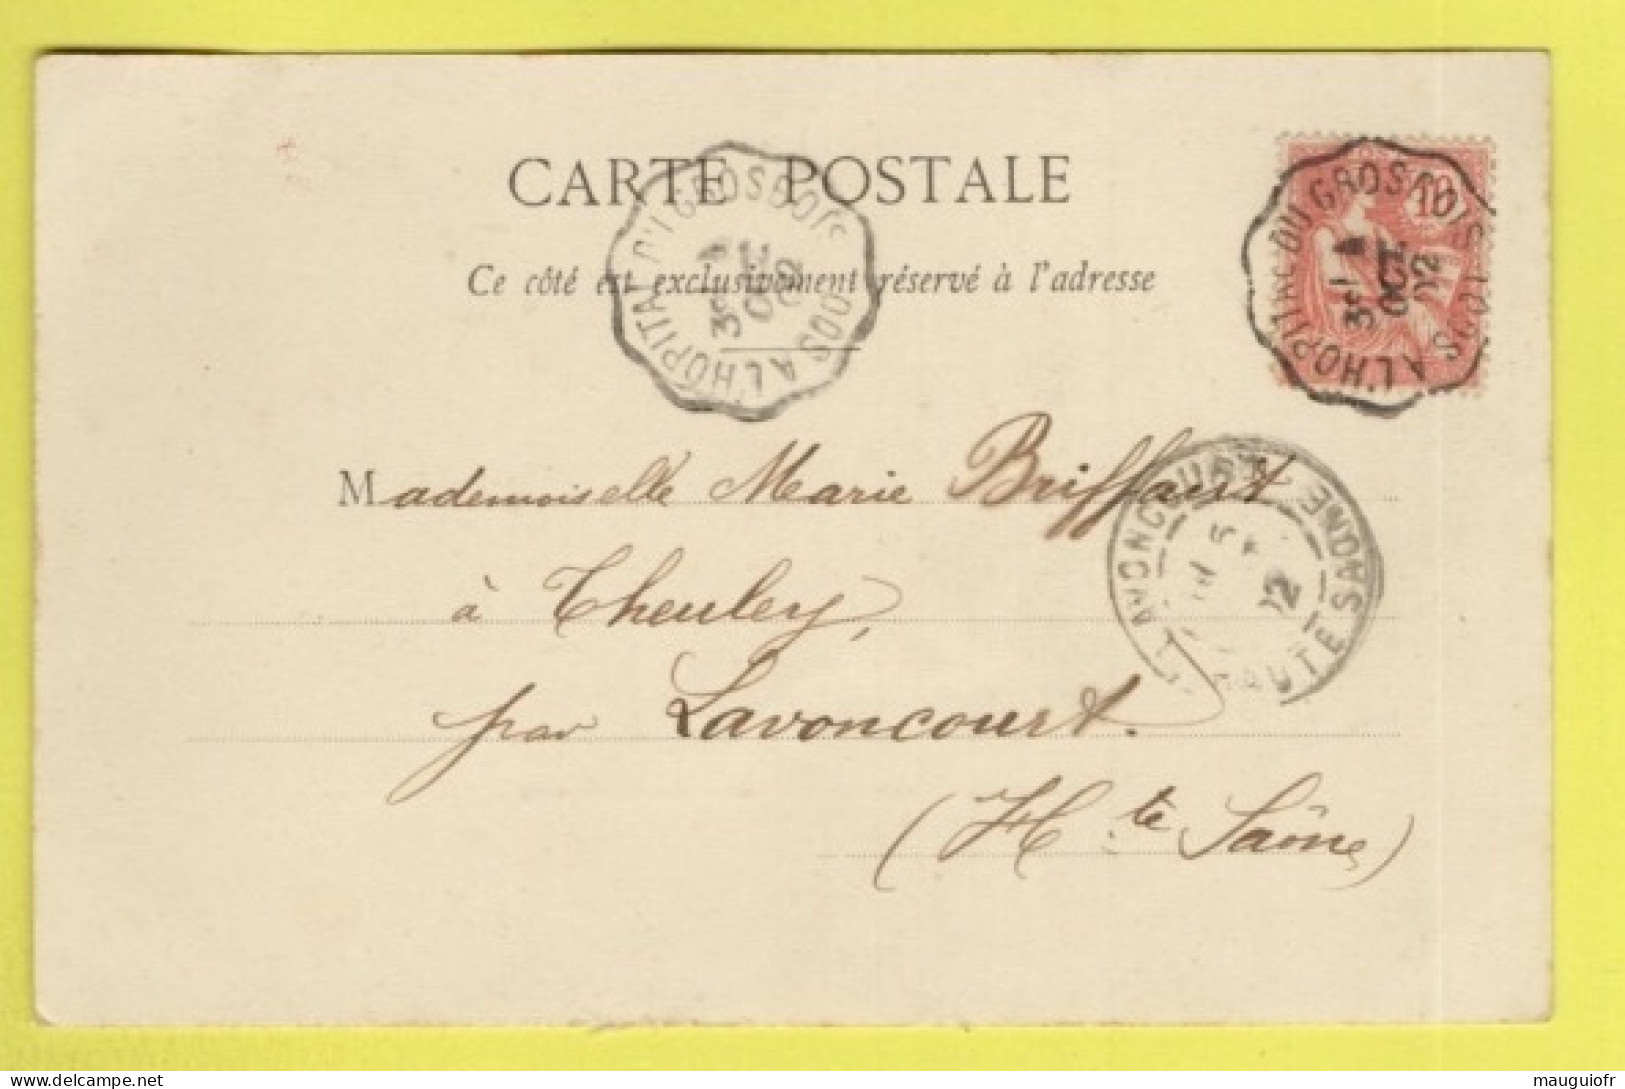 CARTE POSTALE
Ce côté est exclusivement réservé à l'adresse
10
LODS A L'HOPITAL DU GROSBOIS
3E
OCT
02
LODS A L'HOPITAL DU GROSBOIS
3E
OCT
02
Mademoiselle Marie Briffaut
à Theuley,
par Lavoncourt.
(Hte Saône)
LAVONCOURT
HAUTE SAONE
02
mauguiofr